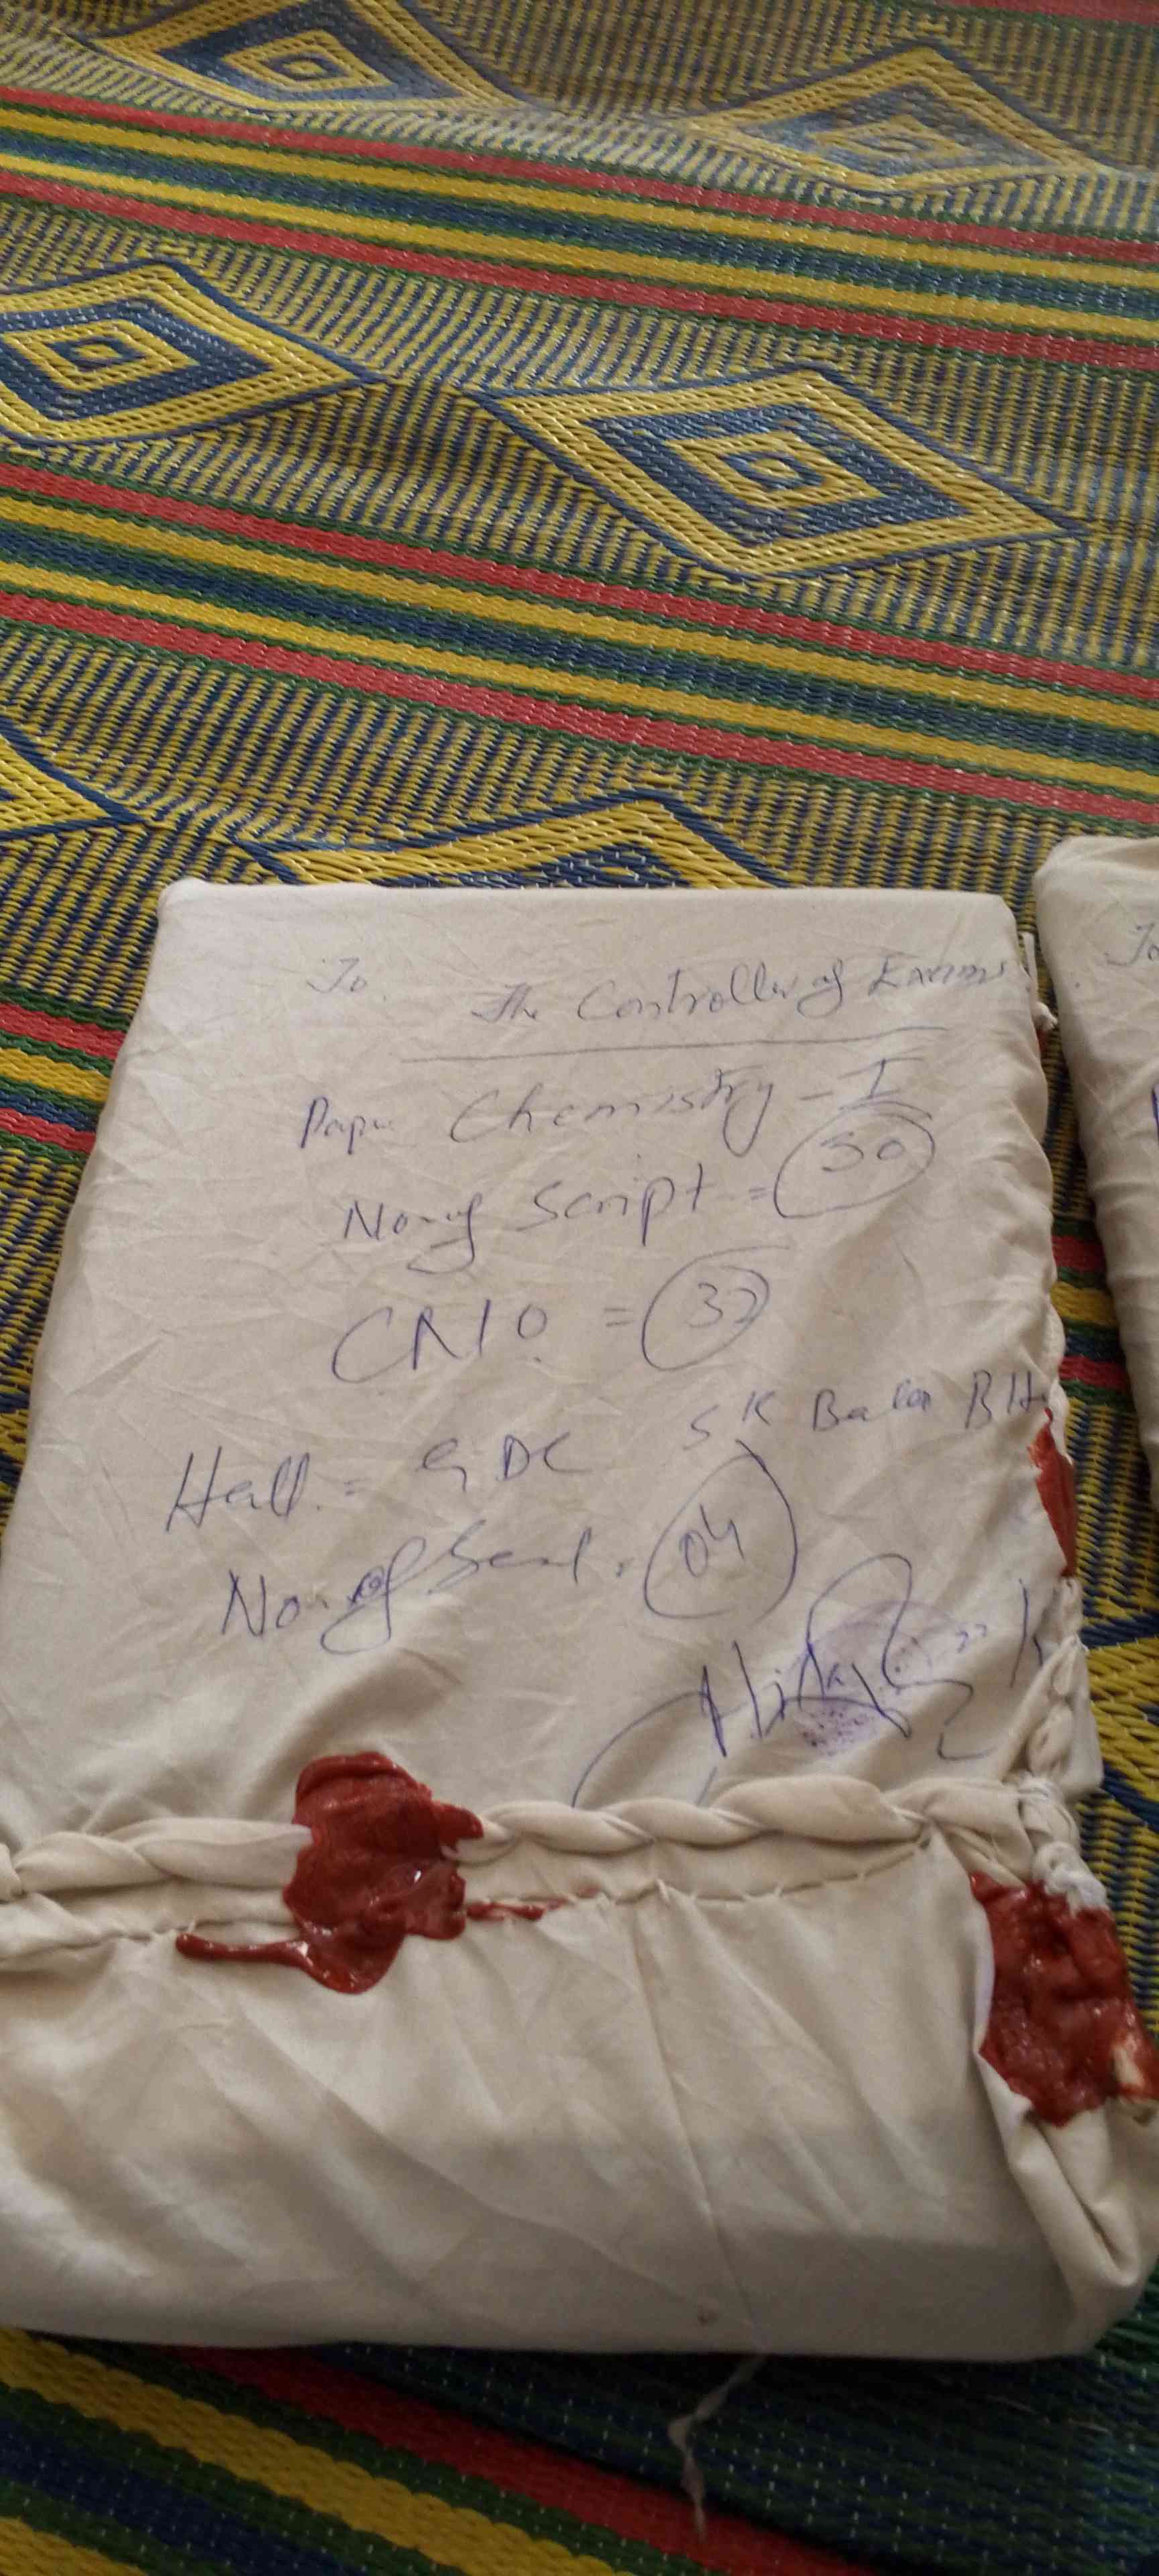 To.
The Controller of Exams
Paper Chemistry - I
No. of Script = 50
CNIO = 32
Hall = GDC SK Bala
No. of Seal = 04
To